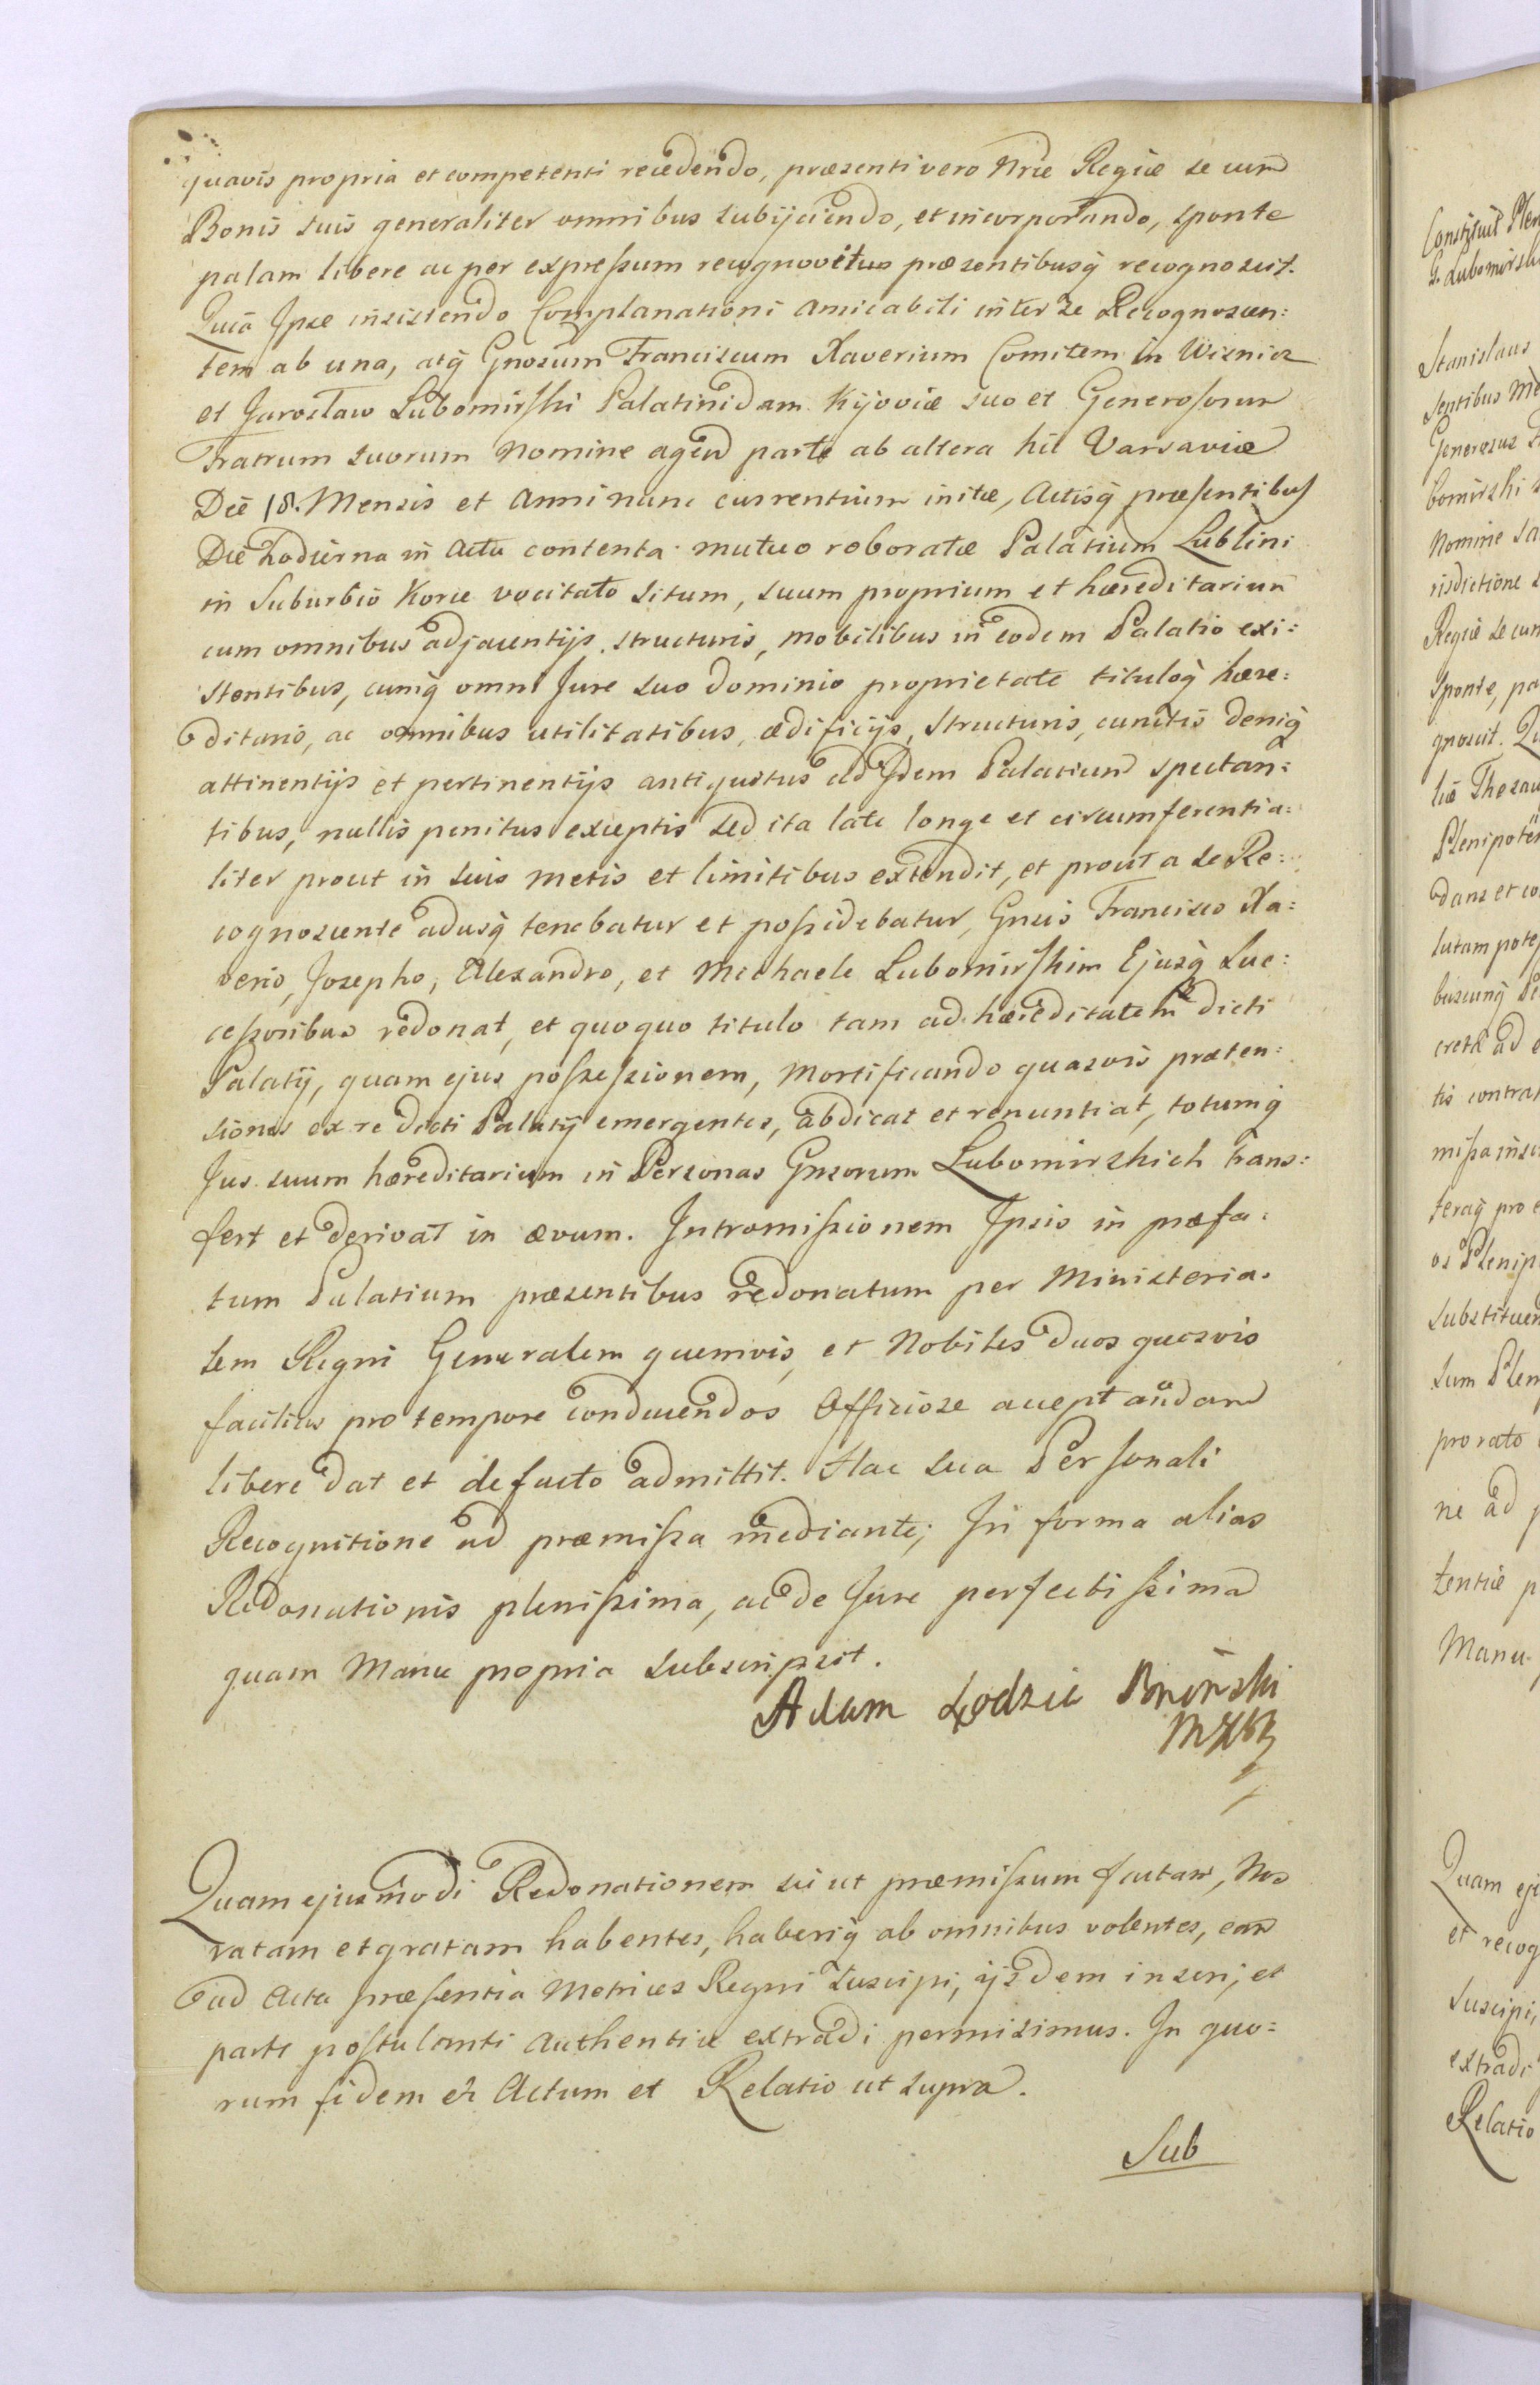 quavis propria et competenti recedendo, præsenti vero Nræ Regiæ se cum
Bonis suis generaliter omnibus subijciendo, et incorporando, sponte
palam libere ac per expressum recognovit præsentibusq́ recognoscit.
Quia Ipse insistendo Complanationi amicabili inter se Recognoscen:
tem ab una, atq́ Gnosum Franciscum Xaverium Comitem in Wisnicz
et Jarosław Lubomirski Palatinidam Kijoviæ suo et Generosorum
Fratrum suorum Nomine agen parte ab altera hic Varsaviæ
Die 18. Mensis et Anni nunc currentium initæ, Actisq́ præsentibus
Die hodierna in Actu contenta mutuo roboratæ Palatium Lublini
in Suburbio Korce vocitato situm, suum proprium et hæreditarium
cum omnibus adjacentijs structuris, mobilibus in eodem Palatio exi:
stentibus, cumq́ omni Jure suo dominio proprietate tituloq́ hære:
ditario, ac omnibus utilitatibus, ædificijs, structuris, cunctis deniq́
attinentijs et pertinentijs antiquitus ad Idem Palatium spectan:
tibus, nullis penitus exceptis sed ita late longe et circumferentia:
liter prout in suis metis et limitibus extendit, et prout a se Re:
cognoscente adusq́ tenebatur et possidebatur, Gnsis Francisco Xa:
verio, Josepho, Alexandro, et Michaele Lubomirskim Ejusq́ Suc:
cessoribus redonat, et quoquo titulo tam ad hæreditatem dicti
Palatij, quam ejus possessionem, mortificando quasvis præten:
siones ex re dicti Palatij emergentes, abdicat et renuntiat, totumq́
Jus suum hæreditarium in Personas Gnsorum Lubomirskich trans:
fert et derivat in ævum. Intromissionem Ipsis in præfa:
tum Palatium præsentibus redonatum per Ministeria:
lem Regni Generalem quemvis, et Nobiles duos quosvis
facilius pro tempore conducendos Officiose acceptandam
libere dat et de facto admittit. Hac sua Personali
Recognitione ad præmissa mediante; In forma alias
Redonationis plenissima, ac de Jure perfectissima
quam Manu propria subscripsit.
Adam Łodzic Bninski
Quam ejusmodi Redonationem sic ut præmissum factam, Nos
ratam et gratam habentes, haberiq́ ab omnibus volentes, eam
ad Acta præsentia Metrices Regni suscipi, ijsdem inseri, et
parte postulanti Authentice extradi permisimus. In quo:
rum fidem etc Actum et Relatio ut supra.
Sub
Constituit Plen
G. Lubomirski
Stanislaus
sentibus
Generosus
bomirski
Nomine
risdictione
Regiæ se cum
sponte, pa
gnoscit. Qu
liæ Thesau
Plenipoten
dans et co
lutam pote
buscunq́
creta ad
tis contra
missa
teraq́ pro
os Plenip
substituen
sum Plen
pro rato
ne ad p
tentiæ p
Manu
Quam ej
et recog
suscipi,
extradi
Relatio